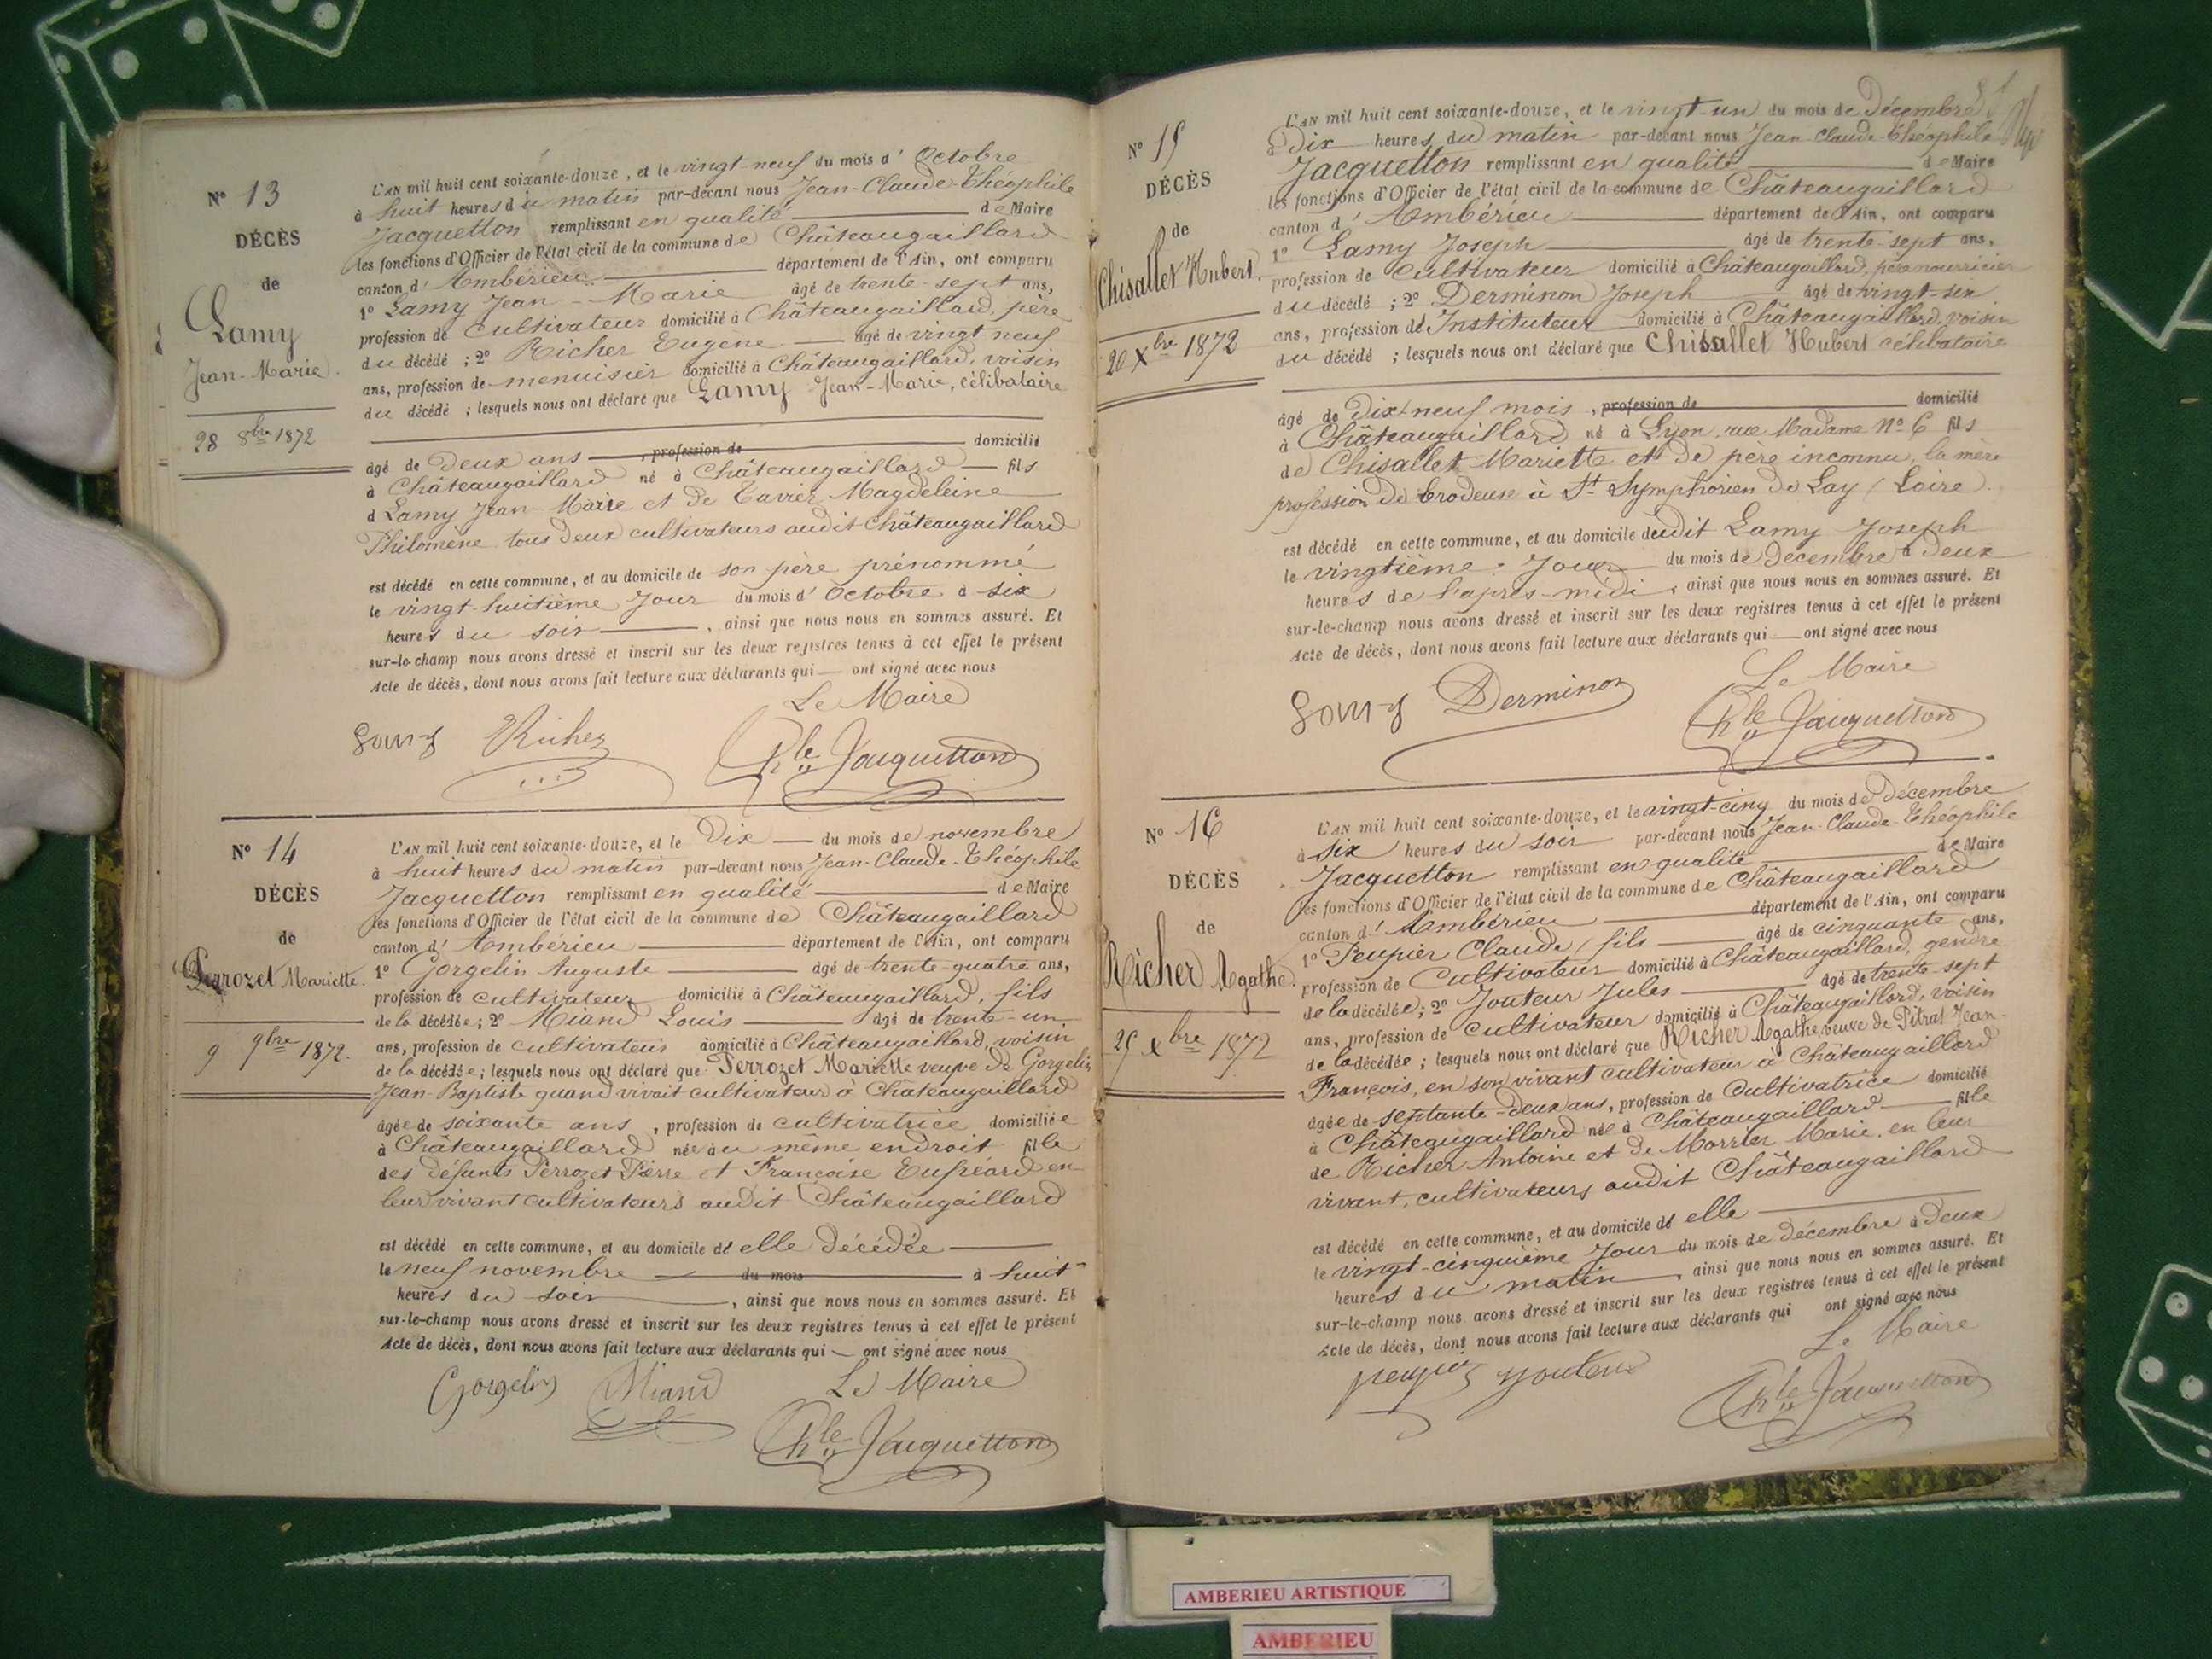 N° 13
DÉCÈS
de
Lamy
Jean-Marie.
28 8bre 1872
L'AN mil huit cent soixante-douze, et le vingt-neuf du mois d'Octobre
à huit heures du matin par-devant nous Jean-Claude-Théophile
Jacquetton remplissant en qualité de Maire
les fonctions d'Officier de l'état civil de la commune de Châteaugaillard
canton d'Ambérieu département de l'Ain, ont comparu
1° Lamy Jean-Marie âgé de trente-sept ans,
profession de Cultivateur domicilié à Châteaugaillard, père
du décédé ; 2° Richer Eugène âgé de vingt neuf
ans, profession de menuisier domicilié à Châteaugaillard, voisin
du décédé ; lesquels nous ont déclaré que Lamy Jean-Marie, célibataire
âgé de Deux ans, profession de domicilié
à Châteaugaillard né à Châteaugaillard fils
d Lamy Jean-Marie et de Tavier Magdeleine
Philomène tous deux cultivateurs audit Châteaugaillard
est décédé en cette commune, et au domicile de son père prénommé
le vingt-huitième Jour du mois d'Octobre à six
heures du soir, ainsi que nous nous en sommes assuré. Et
sur-le-champ nous avons dressé et inscrit sur les deux registres tenus à cet effet le présent
Acte de décès, dont nous avons fait lecture aux déclarants qui ont signé avec nous
Le Maire
Lamy Richer Jacquetton
N° 14
DÉCÈS
de
Perrozet Mariette.
9 9bre 1872.
L'AN mil huit cent soixante-douze, et le Dix du mois de novembre
à huit heures du matin par-devant nous Jean-Claude-Théophile
Jacquetton remplissant en qualité de Maire
les fonctions d'Officier de l'état civil de la commune de Châteaugaillard
canton d'Ambérieu département de l'Ain, ont comparu
1° Gorgelin Auguste âgé de trente-quatre ans,
profession de cultivateur domicilié à Châteaugaillard, fils
de la décédée ; 2° Miand Louis âgé de trente-un
ans, profession de cultivateur domicilié à Châteaugaillard, voisin
de la décédée ; lesquels nous ont déclaré que Perrozet Mariette veuve de Gorgelin
Jean-Baptiste quand vivait cultivateur à Châteaugaillard
âgée de soixante ans, profession de cultivatrice domiciliée
à Châteaugaillard née au même endroit fille
des défunts Perrozet Pierre et Françoise en
leur vivant cultivateurs audit Châteaugaillard
est décédé en cette commune, et au domicile d elle décédée
le neuf novembre du mois à huit
heures du soir, ainsi que nous nous en sommes assuré. Et
sur-le-champ nous avons dressé et inscrit sur les deux registres tenus à cet effet le présent
Acte de décès, dont nous avons fait lecture aux déclarants qui ont signé avec nous
Gorgelin Miand Le Maire
Jacquetton
N° 15
DÉCÈS
de
Chisallet Hubert.
20 Xbre 1872
L'AN mil huit cent soixante-douze, et le vingt-un du mois de Décembre
à Dix heures du matin par-devant nous Jean-Claude-Théophile
Jacquetton remplissant en qualité de Maire
les fonctions d'Officier de l'état civil de la commune de Châteaugaillard
canton d'Ambérieu département de l'Ain, ont comparu
1° Lamy Joseph âgé de trente-sept ans,
profession de Cultivateur domicilié à Châteaugaillard, père nourricier
du décédé ; 2° Derminon Joseph âgé de vingt-six
ans, profession de Instituteur domicilié à Châteaugaillard, voisin
du décédé ; lesquels nous ont déclaré que Chisallet Hubert célibataire
âgé de Dix-neuf mois, profession de domicilié
à Châteaugaillard né à Lyon, rue Madame N° 6 fils
de Chisallet Mariette et de père inconnu, la mère
profession de brodeuse à St Symphorien de Lay (Loire.
est décédé en cette commune, et au domicile dudit Lamy Joseph
le vingtième Jour du mois de Décembre à Deux
heures de l'après-midi, ainsi que nous nous en sommes assuré. Et
sur-le-champ nous avons dressé et inscrit sur les deux registres tenus à cet effet le présent
Acte de décès, dont nous avons fait lecture aux déclarants qui ont signé avec nous
Le Maire
Lamy Derminon Jacquetton
N° 16
DÉCÈS
de
Richer Agathe.
25 Xbre 1872
L'AN mil huit cent soixante-douze, et le vingt-cinq du mois de Décembre
à six heures du soir par-devant nous Jean-Claude-Théophile
Jacquetton remplissant en qualité de Maire
les fonctions d'Officier de l'état civil de la commune de Châteaugaillard
canton d'Ambérieu département de l'Ain, ont comparu
1° Peupier Claude, fils âgé de cinquante ans,
profession de Cultivateur domicilié à Châteaugaillard, gendre
de la décédée ; 2° Jouteur Jules âgé de trente-sept
ans, profession de cultivateur domicilié à Châteaugaillard, voisin
de la décédée ; lesquels nous ont déclaré que Richer Agathe veuve de Pitrat Jean-
François, en son vivant cultivateur à Châteaugaillard
âgée de septante-deux ans, profession de Cultivatrice domicilié
à Châteaugaillard née à Châteaugaillard fille
de Richer Antoine et de Morrier Marie, en leur
vivant, cultivateurs audit Châteaugaillard
est décédé en cette commune, et au domicile d elle
le vingt-cinquième Jour du mois de Décembre à Deux
heures du matin, ainsi que nous nous en sommes assuré. Et
sur-le-champ nous avons dressé et inscrit sur les deux registres tenus à cet effet le présent
Acte de décès, dont nous avons fait lecture aux déclarants qui ont signé avec nous
Le Maire
peupier Jouteur Jacquetton
AMBERIEU ARTISTIQUE
AMBERIEU